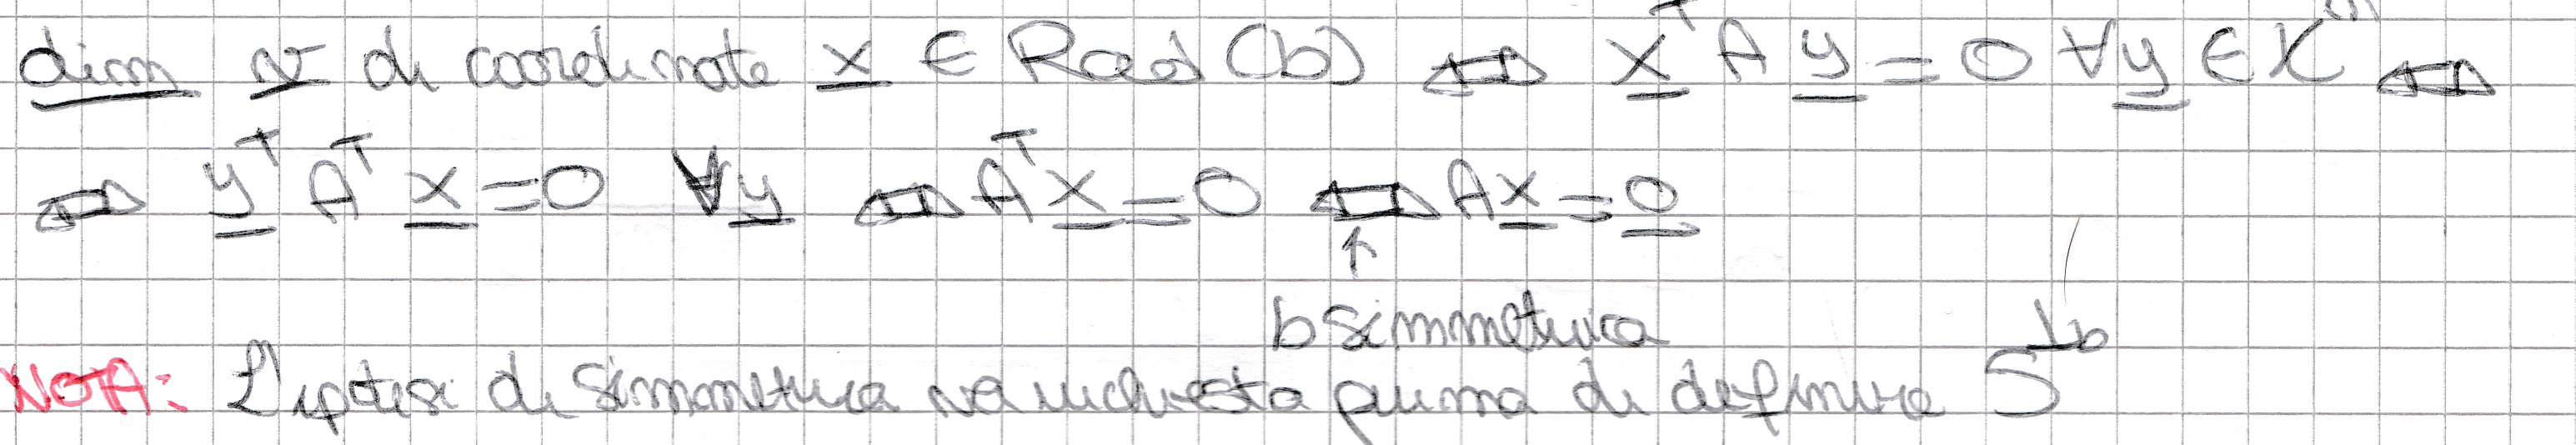 dim v di coordinate x ∈ Rad(b) ⟺ xᵀ A y = 0 ∀y ∈ Kⁿ ⟺
⟺ yᵀ Aᵀ x = 0 ∀y ⟺ Aᵀ x = 0 ⟺ A x = 0
↑
b simmetrica
NOTA: L'ipotesi di simmetrica va richiesta prima di definire S^⊥b